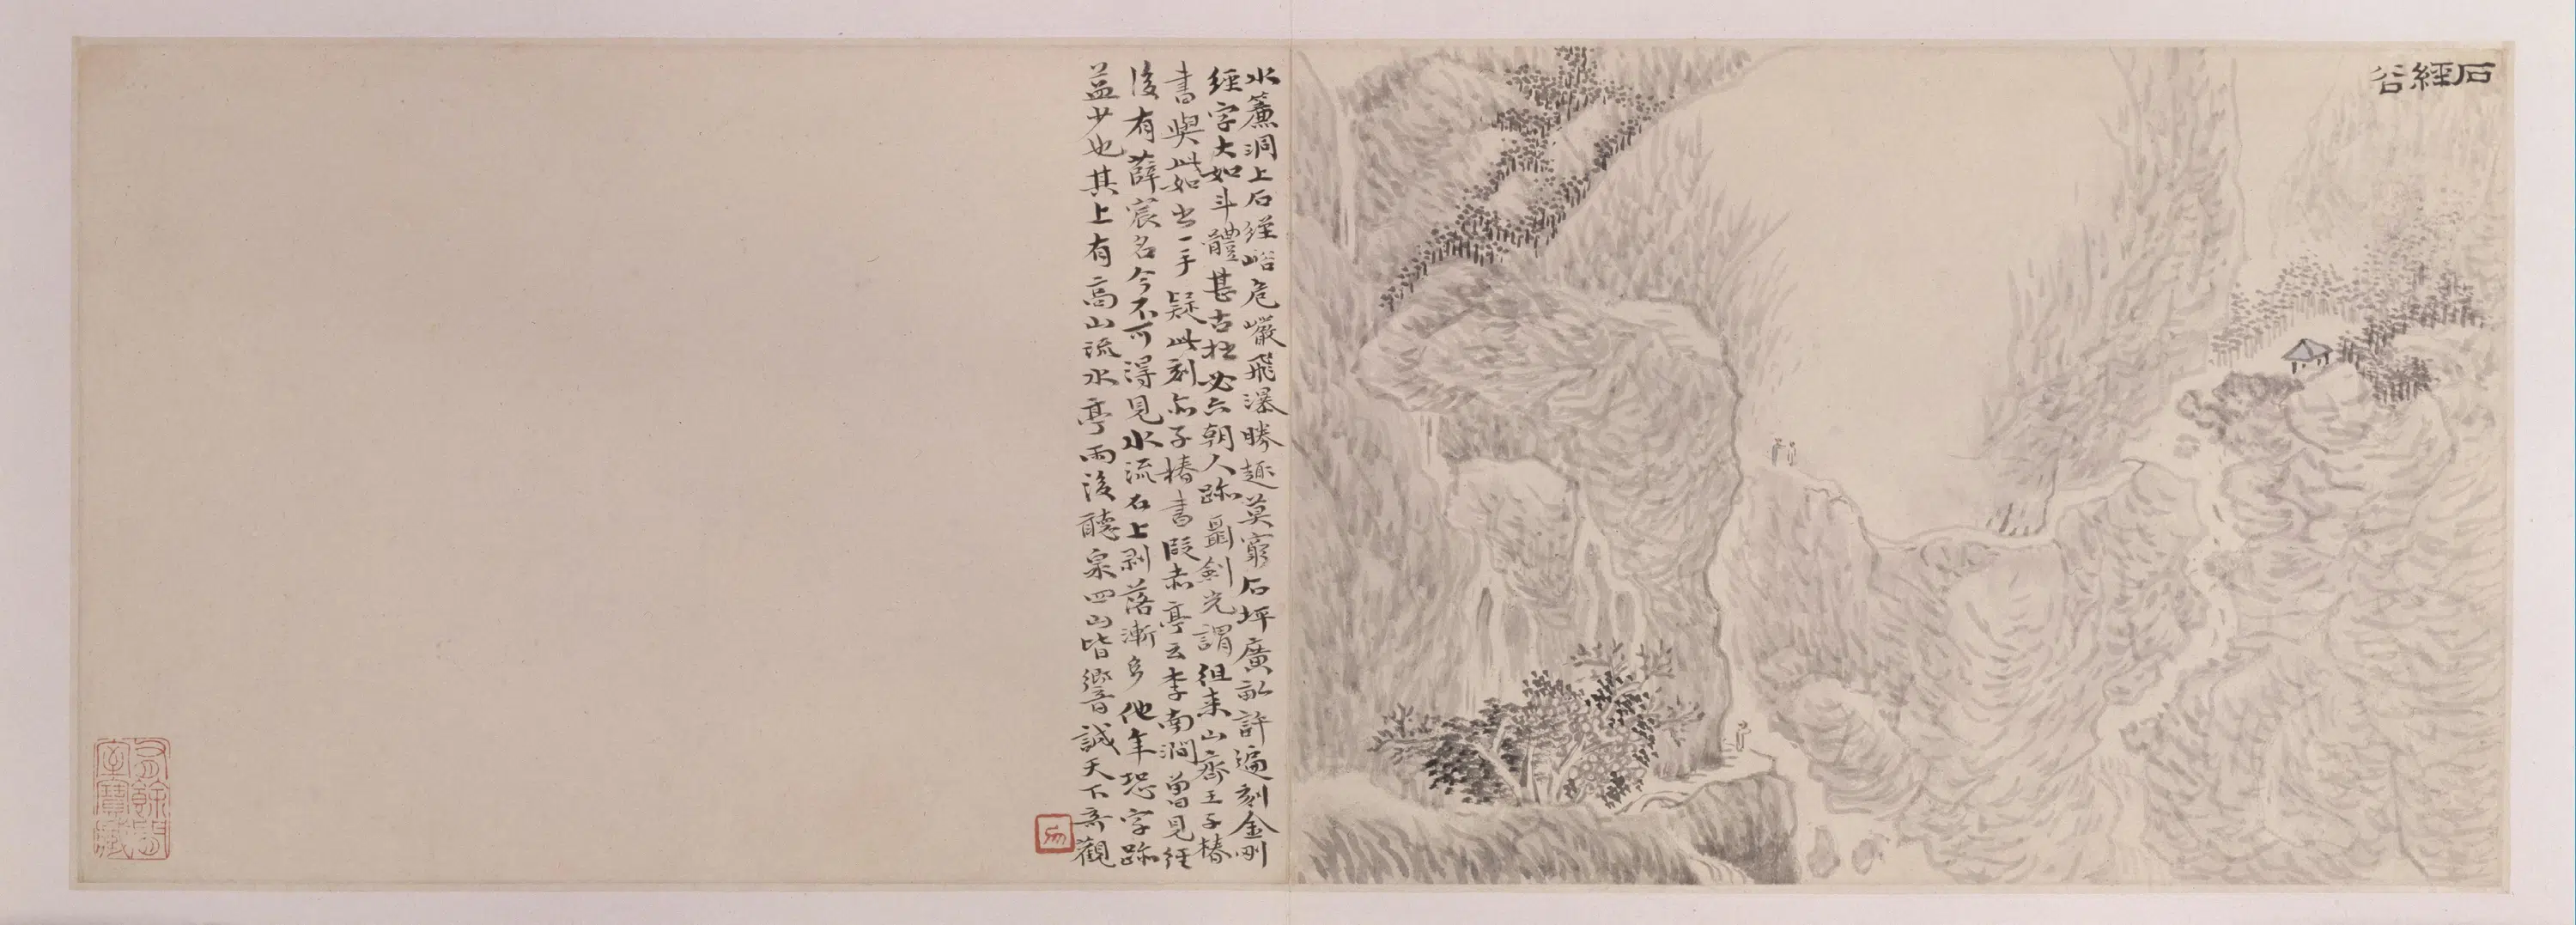 石經谷
水簾洞上石經峪危巖飛瀑勝趣莫窮石坪廣畝許遍刻金剛
經字大如斗體甚古拙必六朝人跡聶劍光謂徂來山齋王子椿
書與此如出一手疑此刻亦子椿書段赤亭云李南澗曾見經
後有薛宸名今不可得見水流石上剥落漸多他年恐字跡
益少也其上有高山流水亭雨後聽泉四山皆響誠天下奇觀
易
有餘閒
室寶藏